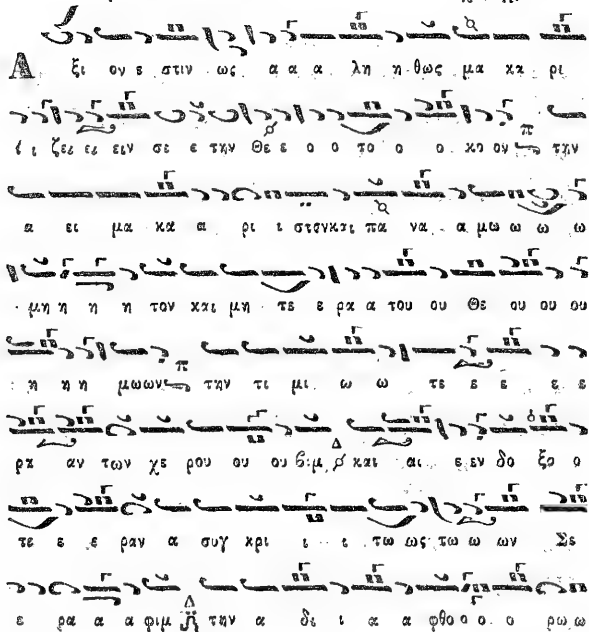 Α ξι ον ε στιν ως α α α λη η θως μα κα ρι
ι ι ζει ει ειν σε ε την Θε ε ο ο το ο ο κο ον π την
α ει μα κα α ρι ι στον και πα να α μω ω ω ω
μη η η η τον και μη τε ε ρα α του ου Θε ου ου ου
η η η μω ων π την τι μι ω ω τε ε ε ε ε
ρα αν των χε ρου ου ου βιμ Δ και αι ε εν δο ξο ο
τε ε ε ραν α συγ κρι ι ι τω ως τω ω ων Σε
ε ρα α α φιμ Δ την α δι ι α α φθο ο ο ο ρω ω